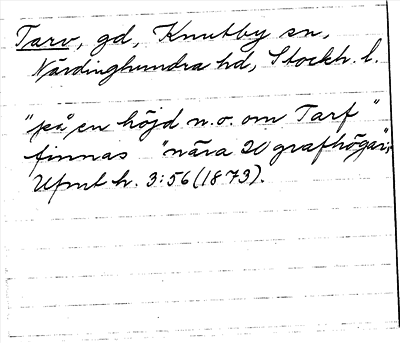 Tarv, gd, Knutby sn,
Närdinghundra hd, Stockh. l.
"på en höjd n.o. om Tarf"
finnas "nära 20 grafhögar",
Upml h. 3:56 (1873).